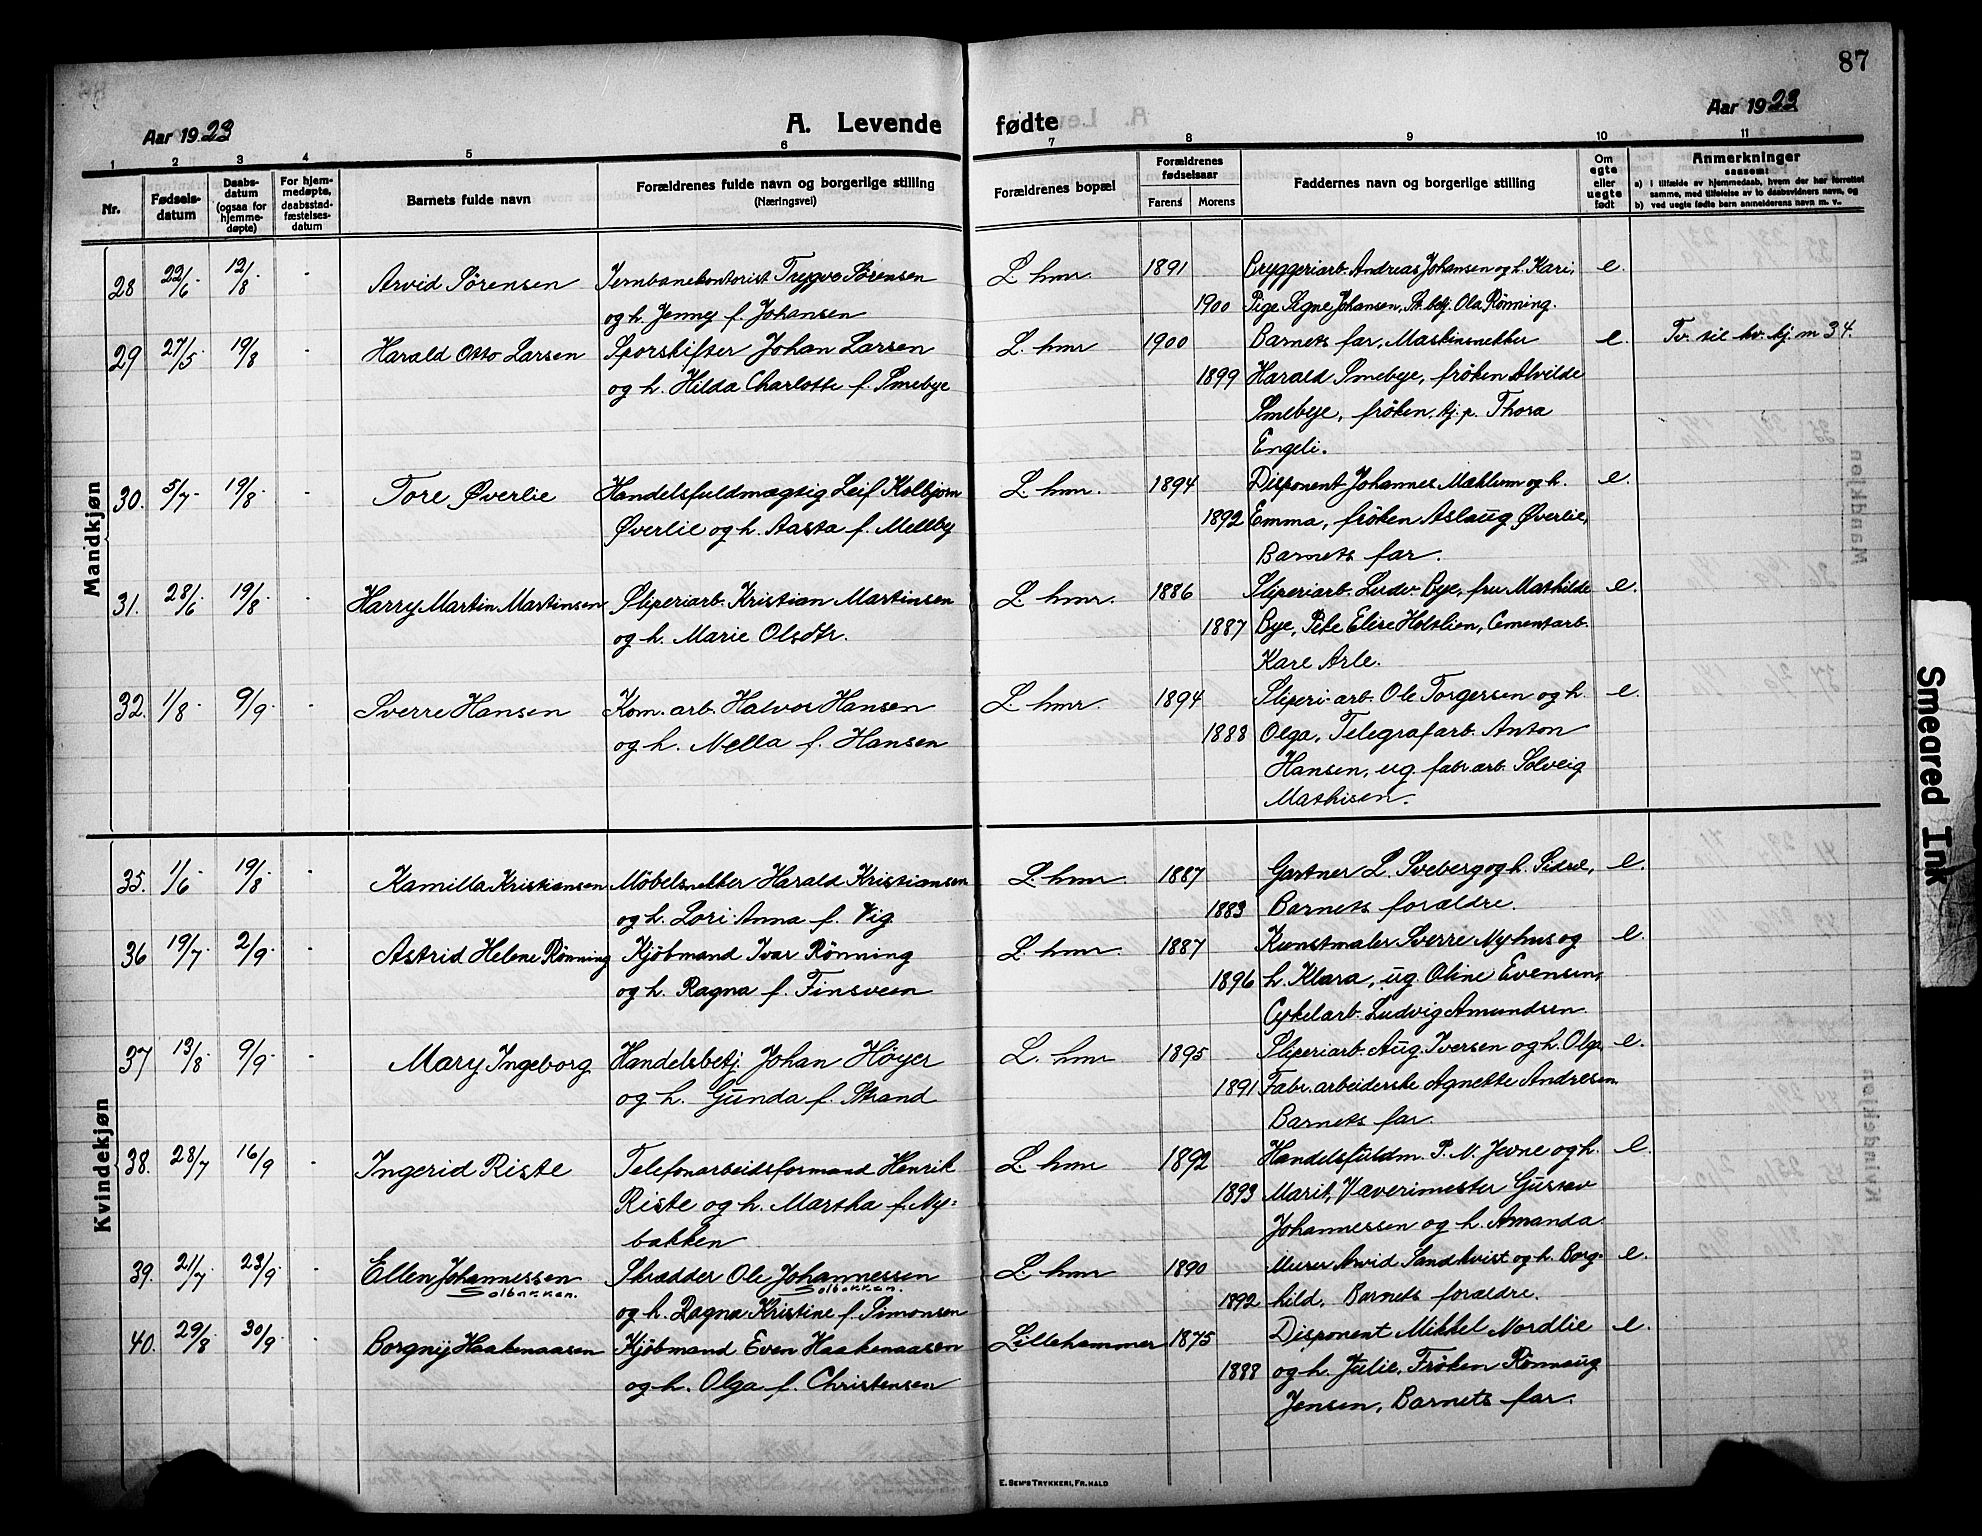 87
Aar 1923
A. Levende
fødte
Aar 1923
1 2 3 4 5 6 7 8 9 10 11
Nr.
Fødsels-
datum
Daabs-
datum
(ogsaa for
hjemme-
døpte)
For hjem-
medøpte,
daabsstad-
fæstelses-
datum
Barnets fulde navn
Forældrenes fulde navn og borgerlige stilling
(Næringsvei)
Forældrenes bopæl
Forældrenes
fødselsaar
Farens Morens
Faddernes navn og borgerlige stilling
Om
egte
eller
uegte
født
Anmerkninger
saasom:
a) i tilfælde av hjemmedaab, hvem der har forrettet
samme, med tilføielse av to daabsvidners navn, og
b) ved uegte fødte barn anmelderens navn m. v..
Mandkjøn
28 22/6 12/8 - Arvid Sörensen Jernbanekontorist Trygve Sörensen L.hmr. 1891 Bryggeriarb. Andreas Johansen og h. Kari, e.
og h. Jenny f. Johansen 1900 Pige Signe Johansen, St. betj. Ola Rönning.
29 27/5 19/8 - Harald Otto Larsen Sporskifter Johan Larsen L. hmr 1900 Barnets far, Maskinsnekker e. Tv. til kv. kj. nr 34.
og h. Hilda Charlotte f. Smebye 1899 Harald Smebye, fröken Alvilde
Smebye, fröken, tj. p. Thora
Engeli.
30. 5/7 19/8 - Tore Øverlie Handelsfuldmægtig Leif Kolbjørn L. hmr. 1894 Disponent Johannes Mæhlum og h. e.
Øverlie og h. Aasta f. Mellby 1892 Emma, fröken Aslaug Øverlie,
Barnets far.
31. 28/6 19/8 - Harry Martin Martinsen Sliperiarb. Kristian Martinsen L. hmr. 1886 Sliperiarb. Ludv. Bye, fru Mathilde e.
og h. Marie Olsdtr. 1887 Bye, Pike Elise Holslien, Cementarb.
Kare Arle.
32. 1/8 9/9 - Sverre Hansen Kom. arb. Halvor Hansen L. hmr. 1894 Sliperi arb. Ole Torgersen og h. e.
og h. Nella f. Hansen 1888 Olga, Telegrafarb. Anton
Hansen, ug. fabr. arb. Solveig
Mathisen.
Kvindekjøn
35. 1/6 19/8 - Kamilla Kristiansen Möbelsnekker Harald Kristiansen L. hmr. 1887 Gartner L. Sveberg og h. Sidsel, e.
og h. Lovi Anna f. Vig 1883 Barnets forældre.
36 19/7 2/9 - Astrid Helene Rönning Kjöbmand Ivar Rönning L. hmr. 1887 Kunstmaler Sverre Nyhus og e.
og h. Ragna f. Finsveen 1896 h. Klara, ug. Oline Evensen,
Cykelarb. Ludvig Amundsen.
37 13/8 9/9 - Mary Ingeborg Handelsbetj. Johan Höyer L. hmr 1895 Sliperiarb. Aug. Iversen og h. Olga, e.
og h. Gunda f. Strand 1891 Fabr. arbeiderske Agnette Andresen.
Barnets far.
38. 28/7 16/9 - Ingerid Riste Telefonarbeidsformand Henrik L. hmr 1892 Handelsfuldm. P. N. Jevne og h. e.
Riste og h. Martha f. Ny- 1893 Marit, Væverimester Gustav
bakken Johannessen og h. Amanda.
39. 21/7 23/9 - Ellen Johannessen Skrædder Ole Johannessen L. hmr 1890 Murer Arvid Sandkvist og h. Borg- e.
Solbakken. Solbakken.
og h. Ragna Kristine f. Simonsen 1892 hild, Barnets forældre.
40. 29/8 30/9 - Borgny Haakenaasen Kjöbmand Even Haakenaasen Lillehammer 1875 Disponent Mikkel Nordlie e.
og h. Olga f. Christensen 1888 og h. Julie, Fröken Rönnaug
Jensen, Barnets far.
E. Sem's Trykkeri, Fr.hald
Smeared Ink